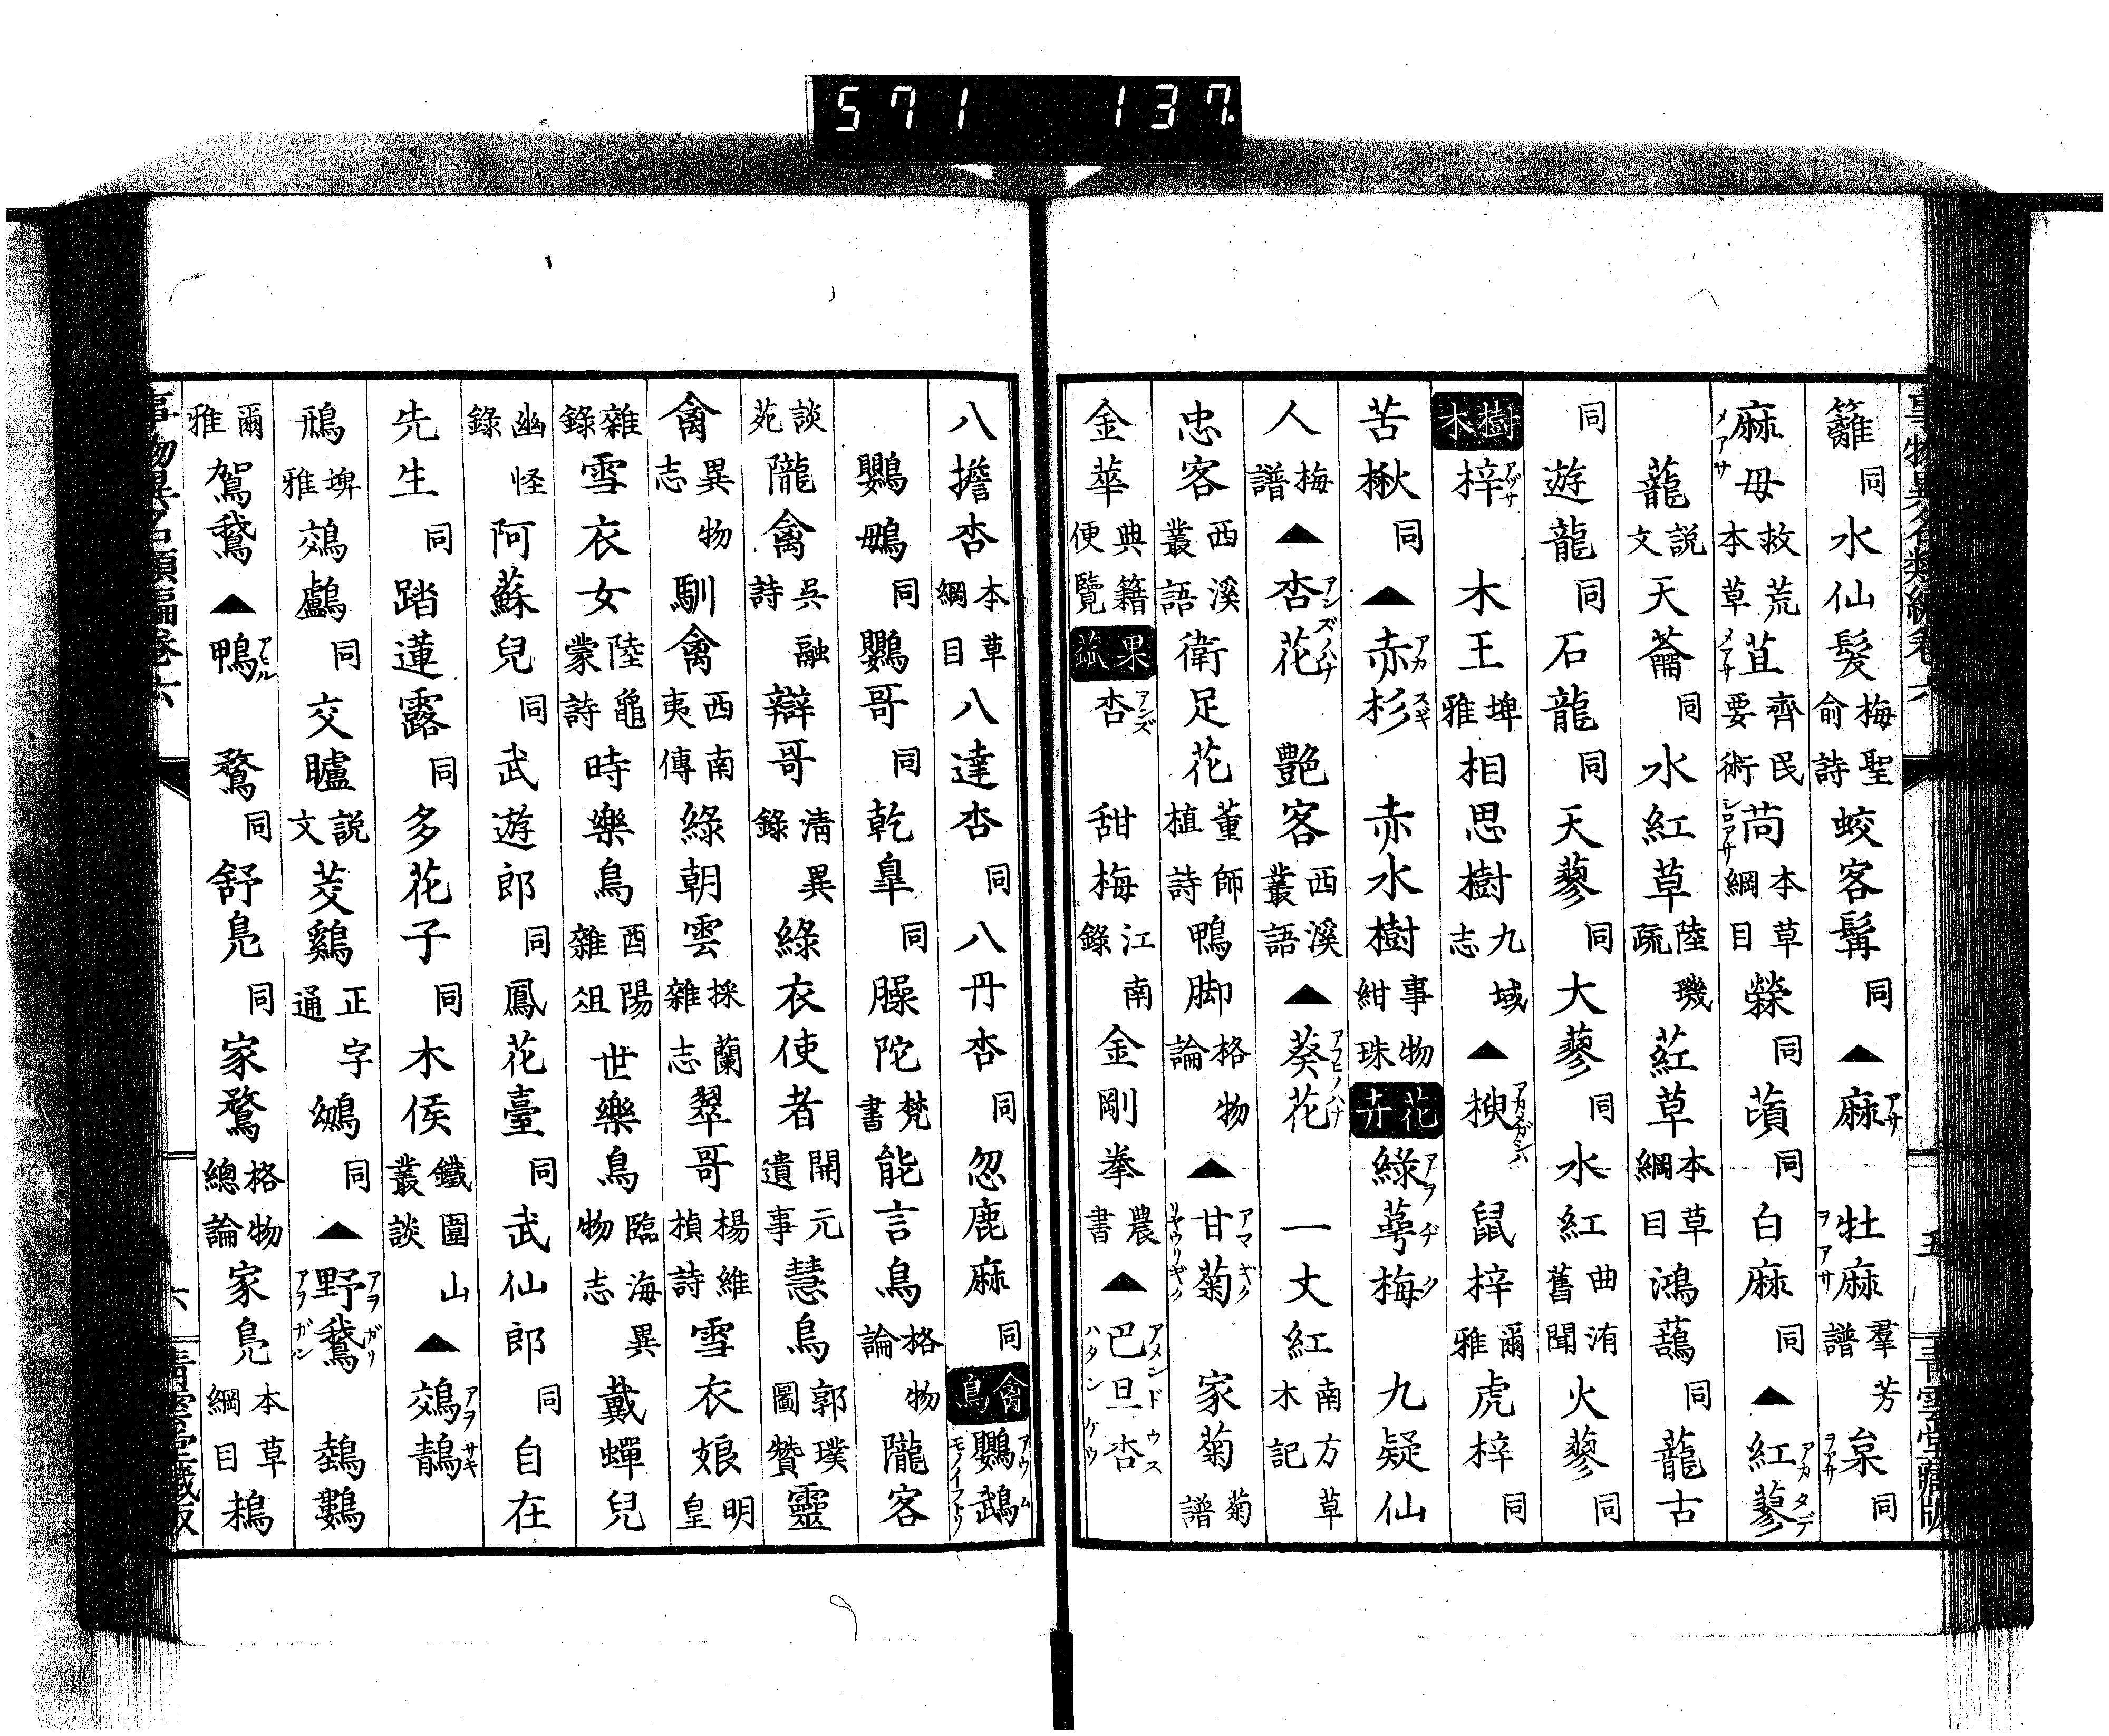 571 137.
事物異名類編卷六 五 青雲堂藏版
籬 同 水仙髮 梅聖俞詩 蛟客髯 同 ▲ 麻アサ 牡麻ヲアサ 羣芳譜 枲ヲアサ 同
麻母メアサ 救荒本草 苴メアサ 齊民要術 苘シロアサ 本草綱目 檾 同 䔛 同 白麻 同 ▲ 紅蓼アカタデ
蘢 説文 天蘥 同 水紅草 陸璣疏 葒草 本草綱目 鴻䕮 同 蘢古
同 遊龍 同 石龍 同 天蓼 同 大蓼 同 水紅 曲洧舊聞 火蓼 同
樹木 梓アヅサ 木王 埤雅 相思樹 九域志 ▲ 楰アカメガシハ 鼠梓 爾雅 虎梓 同
苦楸 同 ▲ 赤杉アカスギ 赤水樹 事物紺珠 花卉 綠萼梅アヲヂク 九疑仙
人 梅譜 ▲ 杏花アンズノハナ 艷客 西溪叢語 ▲ 葵花アフヒノハナ 一丈紅 南方草木記
忠客 西溪叢語 衛足花 董師植詩 鴨脚 格物論 ▲ 甘菊アマギク リヤウリギク 家菊 菊譜
金華 典籍便覽 果蓏 杏アンズ 甜梅 江南錄 金剛拳 農書 ▲ 巴旦杏アメンドウス ハタンケウ
八擔杏 本草綱目 八達杏 同 八丹杏 同 忽鹿麻 同 禽鳥 鸚鵡アウム モノイフトリ
鸚䳇 同 鸚哥 同 乾皐 同 臊陀 梵書 能言鳥 格物論 隴客
談苑 隴禽 吳融詩 辯哥 清異錄 綠衣使者 開元遺事 慧鳥 郭璞圖贊 靈
禽 異物志 馴禽 西南夷傳 綠朝雲 採蘭雜志 翠哥 楊維楨詩 雪衣娘 明皇
雜錄 雪衣女 陸龜蒙詩 時樂鳥 酉陽雜俎 世樂鳥 臨海異物志 戴蟬兒
幽怪錄 阿蘇兒 同 武遊郎 同 鳳花臺 同 武仙郎 同 自在
先生 同 踏蓮露 同 多花子 同 木侯 鐵圍山叢談 ▲ 鵁鶄アヲサギ
鳽 埤雅 鵁鸕 同 交矑 説文 茭鷄 正字通 𪁉 同 ▲ 野鵞アヲガリ アヲガン 鴣鸅
爾雅 鴐鵞 ▲ 鴨アヒル 鶩 同 舒鳧 同 家鶩 格物總論 家鳧 本草綱目 鴸
事物異名類編卷六 六 青雲堂藏版